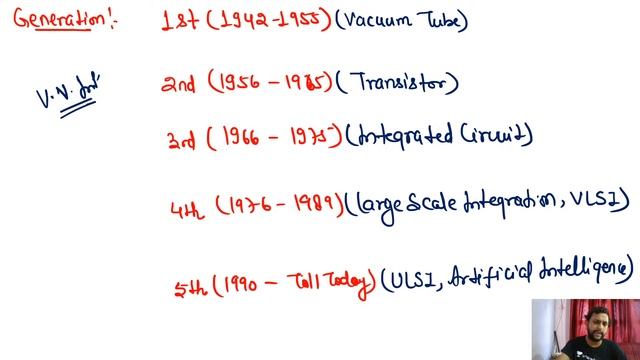 Generation:- 1st (1942-1955) (Vacuum Tube)
2nd (1956 - 1965) (Transistor)
V.V.Imp
3rd (1966 - 1975) (Integrated Circuit)
4th (1976 - 1989) (Large Scale Integration, VLSI)
5th (1990 - Till Today) (ULSI, Artificial Intelligence)